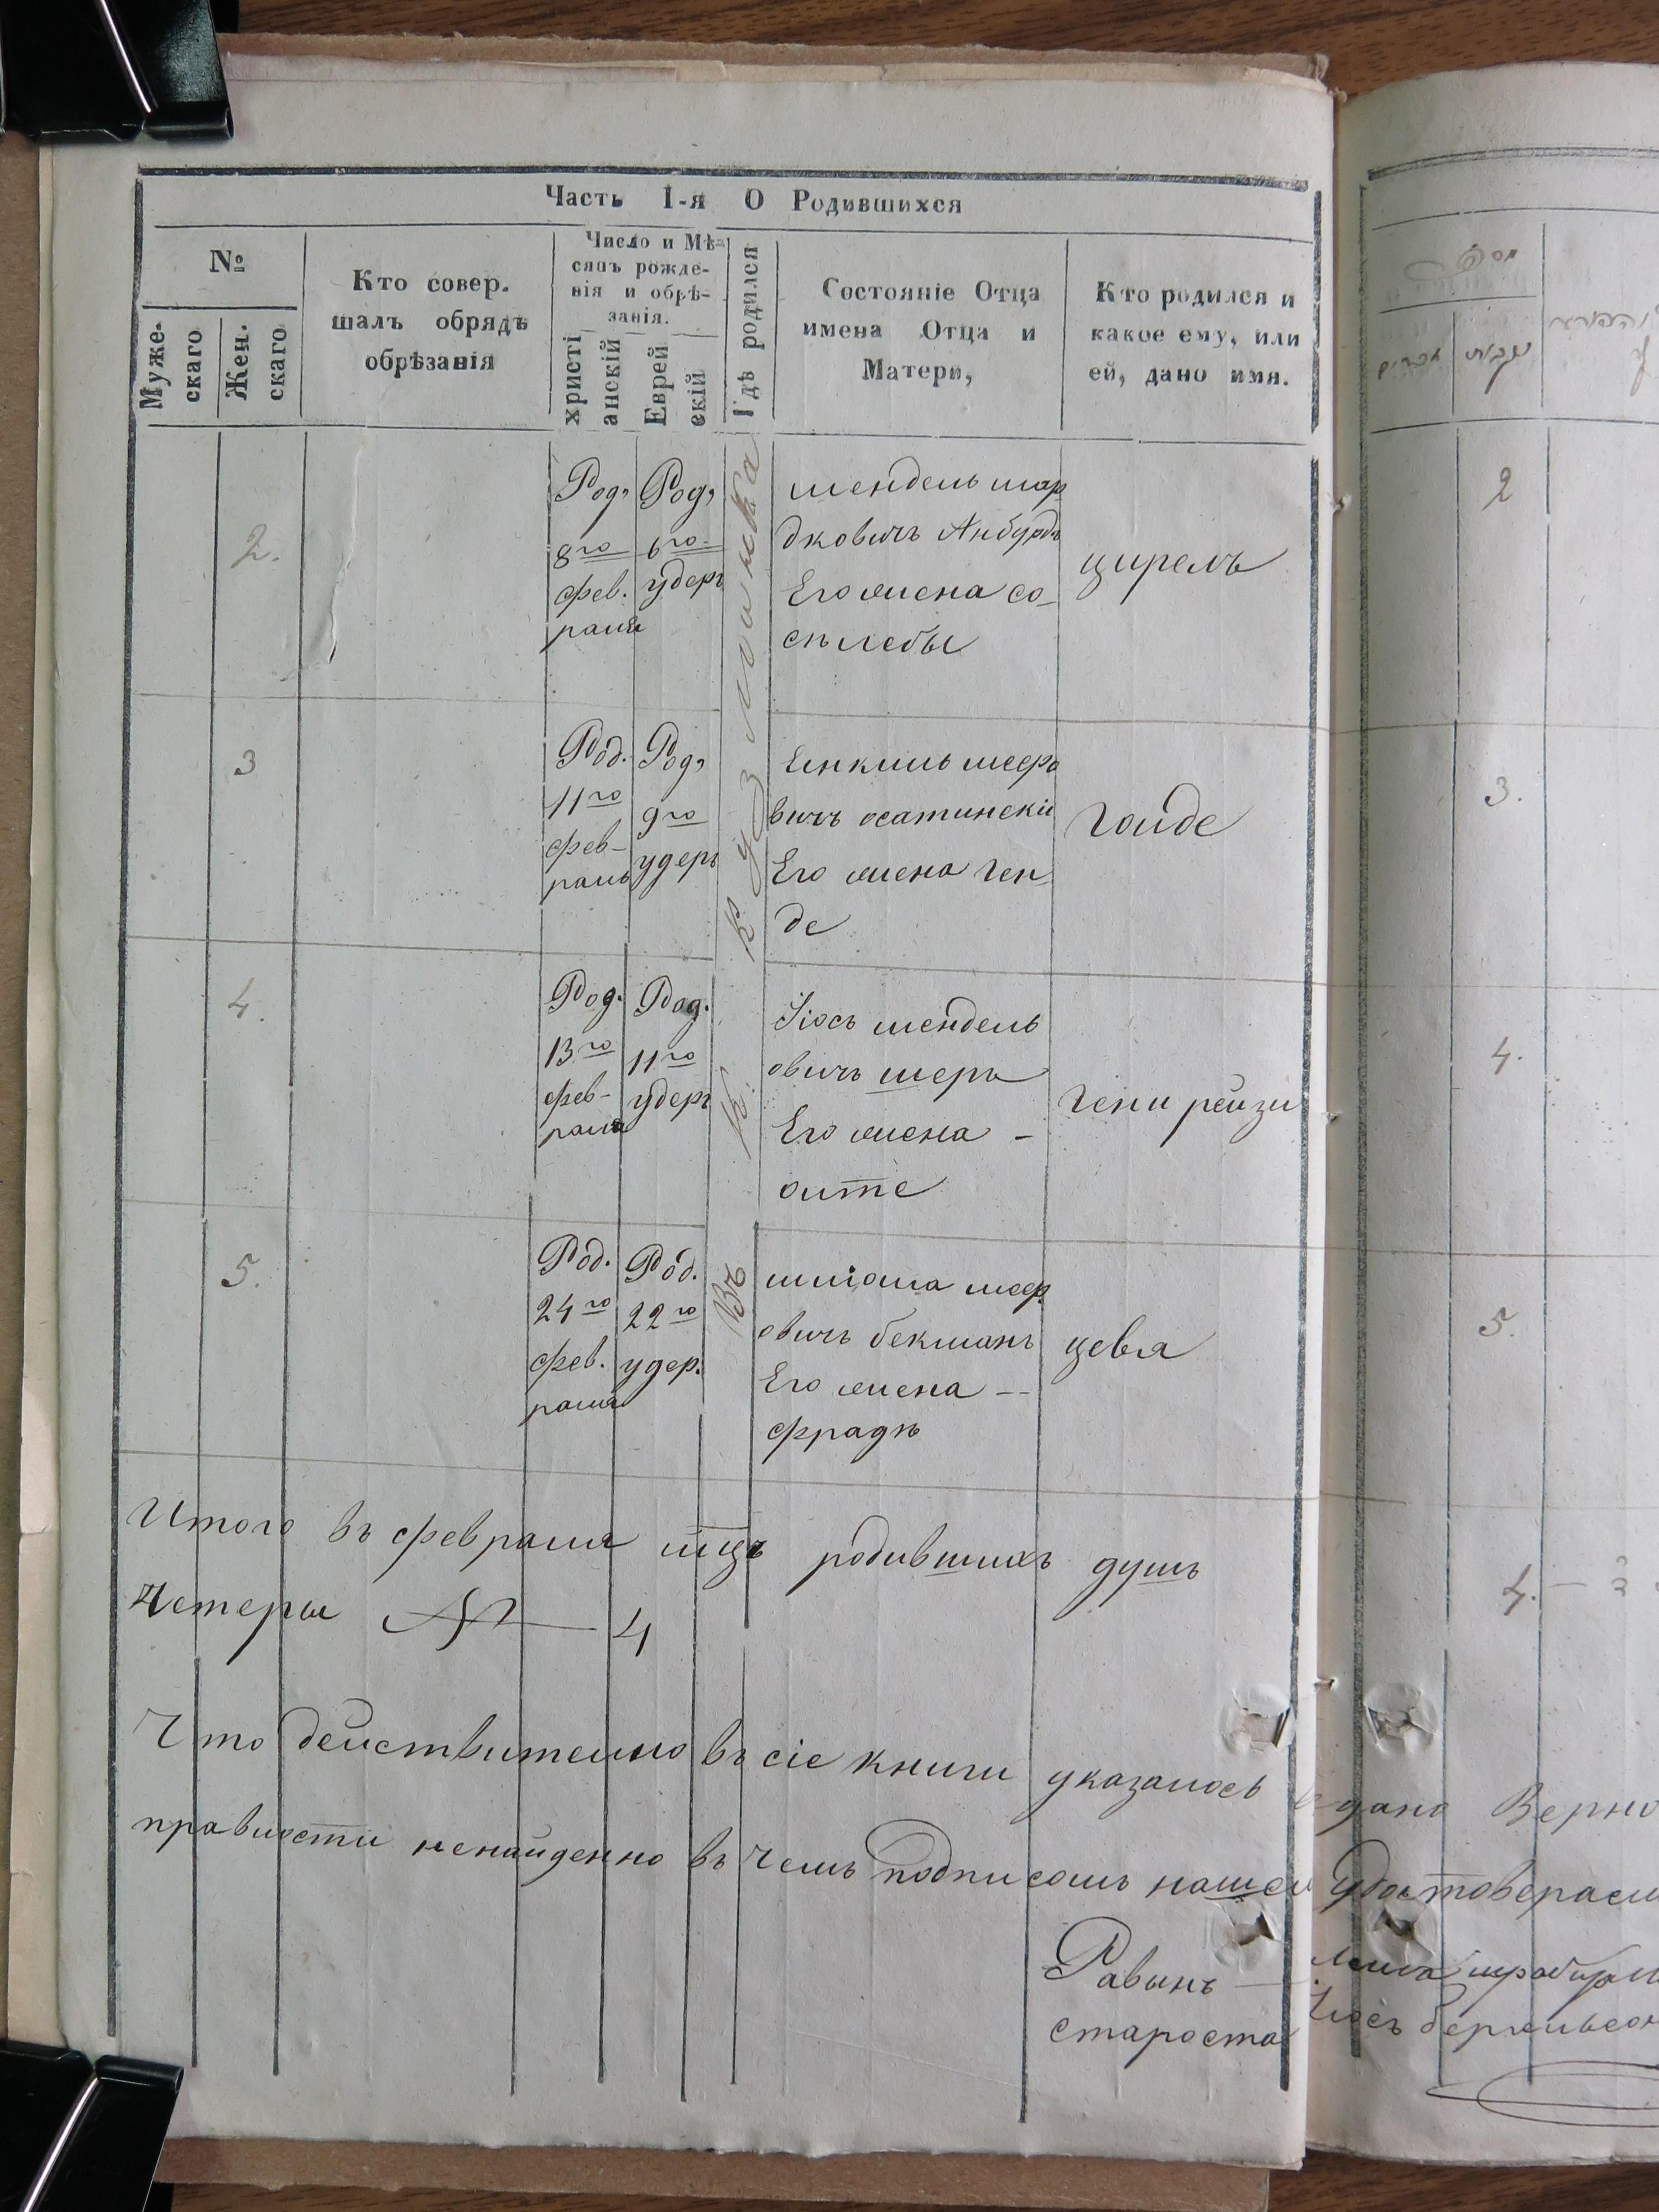 Часть I-я О Родившихся
№
Муже-
скаго
Жен.
скаго
Кто совер.
шалъ обрядъ
обрѣзанія
Число и Мѣ-
сяцъ рожде-
нія и обрѣ-
занія.
христі
анскій
Еврей
скій
Гдѣ родился
Состояніе Отца
имена Отца и
Матери,
Кто родился и
какое ему, или
ей, дано имя.
2.
Род,
8го
фев.
раля
Род,
6го
удеръ
мендель мар
дковичъ
Его жена со-
сь лебы
цирель
3
Род.
11го
фев-
раль
Род,
9го
удеръ
Енкиль меер
вичъ осатинскій
Его жена ген
де
голде
4.
Род.
13го
фев-
раля
Род.
11го
удеръ
Іiось мендель
овичъ шеръ
Его жена -
оите
гени рейзи
5.
Род.
24го
фев.
раля
Род.
22го
удер.
шліома меер
овичъ бекманъ
Его жена --
фрадъ
цевя
Въ
Итого въ февраля мцъ родившихъ душъ
Четеры 4
Что действительно въ сіе книги указалось
правности ненайденно въ чемъ подписомъ нашем
Равынъ
староста
2
3.
4.
5.
4.
дано Верно